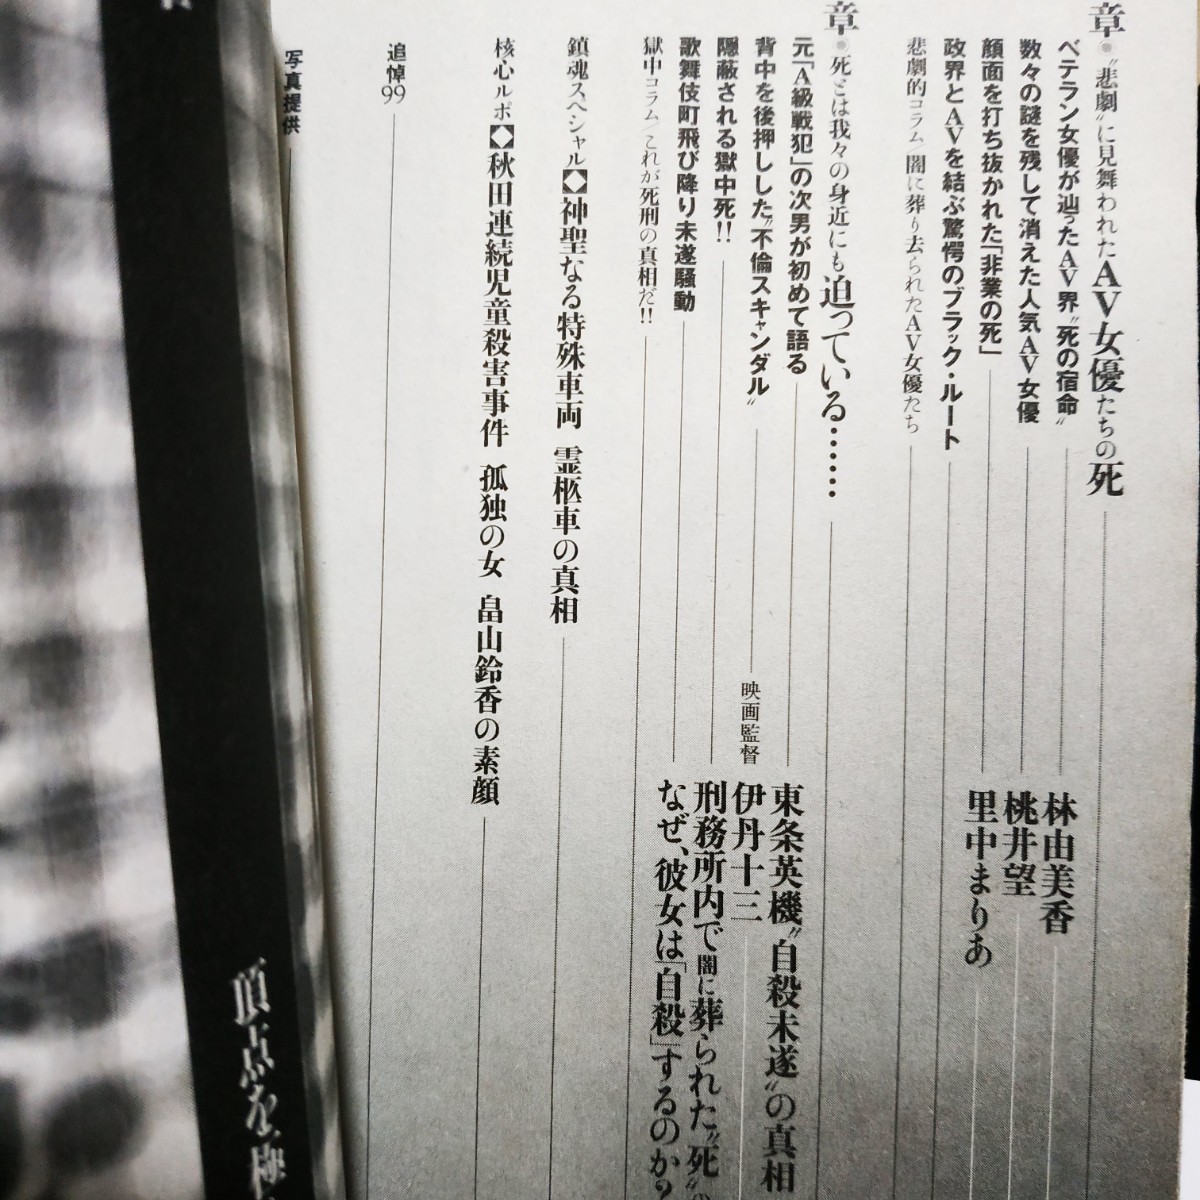 章◉〝悲劇〟に見舞われたAV女優たちの死
ベテラン女優が辿ったAV界〝死の宿命〟 林由美香
数々の謎を残して消えた人気AV女優 桃井望
顔面を打ち抜かれた「非業の死」 里中まりあ
政界とAVを結ぶ驚愕のブラック・ルート
悲劇的コラム/闇に葬り去られたAV女優たち
章◉死とは我々の身近にも迫っている……
元「A級戦犯」の次男が初めて語る 東条英機〝自殺未遂〟の真相
背中を後押しした〝不倫スキャンダル〟 映画監督 伊丹十三
隠蔽される獄中死!! 刑務所内で闇に葬られた〝死〟の
歌舞伎町飛び降り未遂騒動 なぜ、彼女は「自殺」するのか?
獄中コラム/これが死刑の真相だ!!
鎮魂スペシャル◆神聖なる特殊車両 霊柩車の真相
核心ルポ◆秋田連続児童殺害事件 孤独の女 畠山鈴香の素顔
追悼99
写真提供
頂点を極